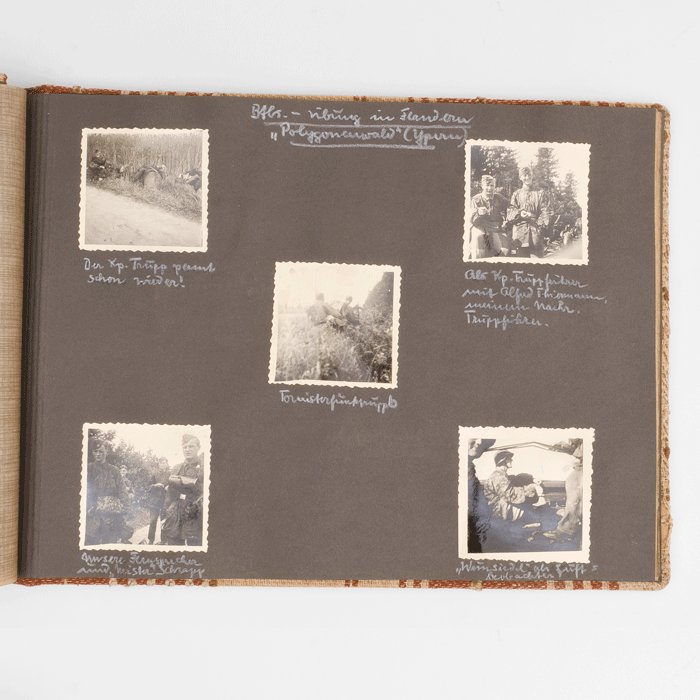 Btls. - Übung in Flandern
„Polygonenwald" (Ypern)
Der Kp.-Trupp pennt
schon wieder!
Als Kp.-Truppführer
mit Alfred Thiemann,
meinem Nachr.
Truppführer.
Tornisterfunktrupp b
Unsere Fernsprecher
und
als Luft=
beobachter